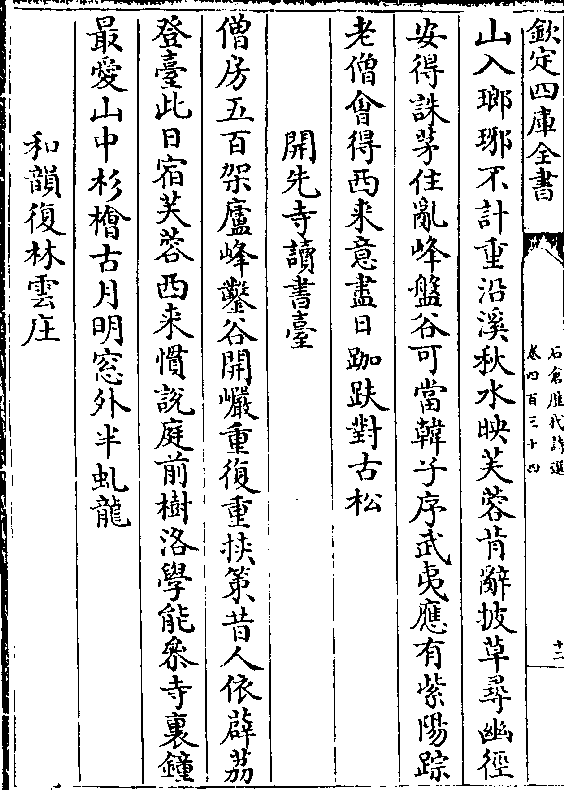 欽定四庫全書
石倉歷代詩選
卷四百三十四
十二
山入瑯琊不計重沿溪秋水映芙蓉肯辭披草尋幽徑
安得誅茅住亂峰盤谷可當韓子序武夷應有紫陽踪
老僧會得西来意盡日跏趺對古松
開先寺讀書臺
僧房五百架廬峰鑿谷開巖重復重挾䇿昔人依薜荔
登臺此日宿芙蓉西来慣說庭前樹洛學能叅寺裏鐘
最愛山中杉檜古月明窓外半虬龍
和韻復林雲庄